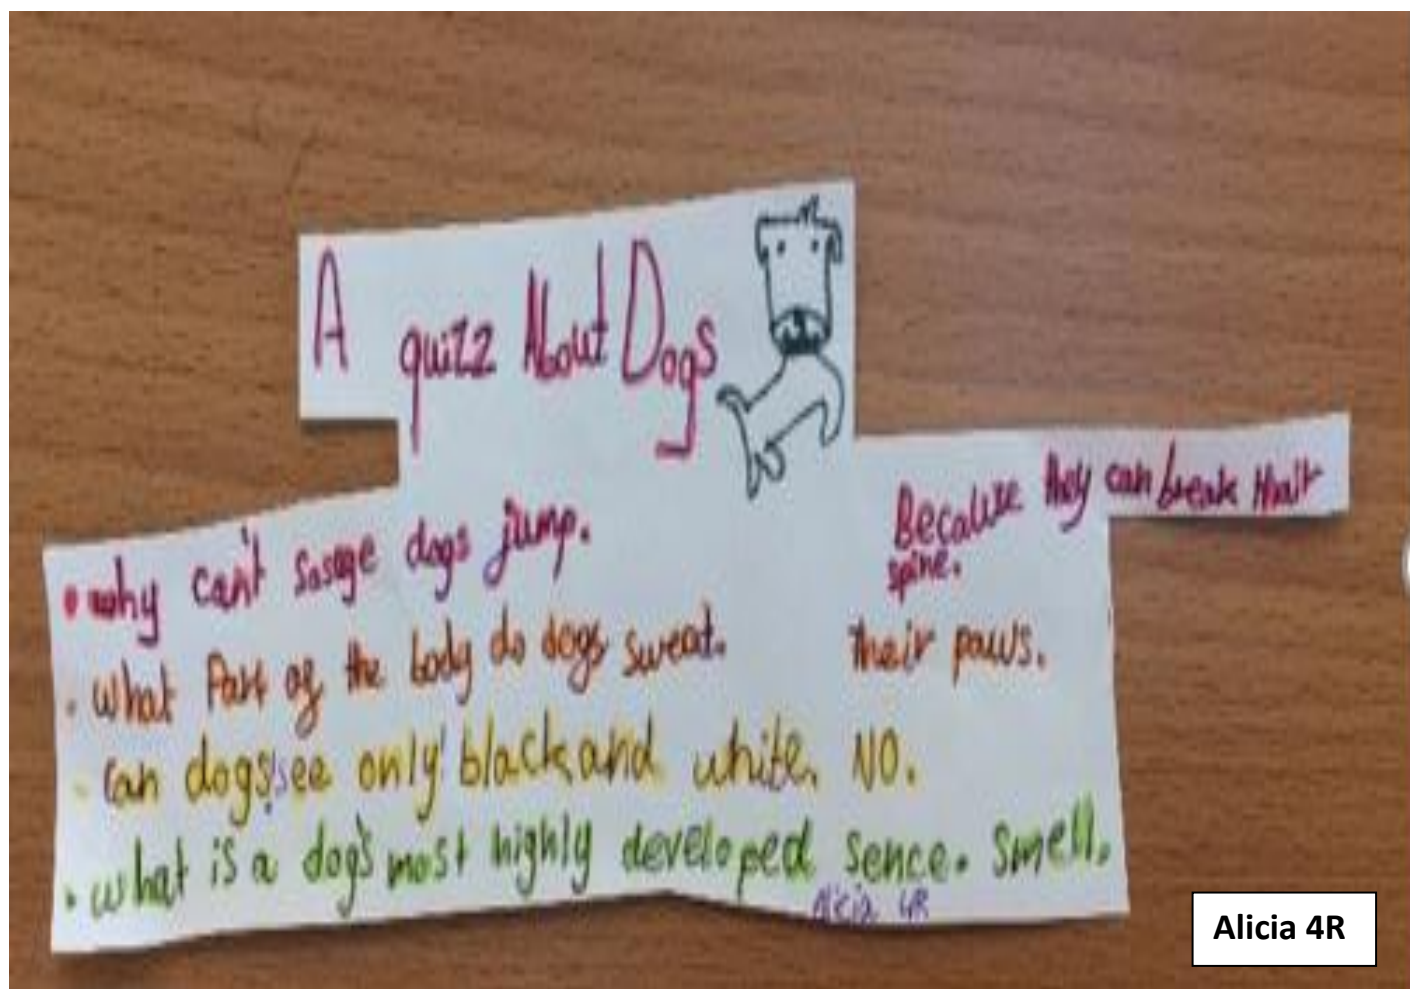 A quizz About Dogs
• why can't sosage dogs jump. Because they can break their
spine.
• What Part of the body do dogs sweat. their paws.
• Can dogs see only black and white. NO.
• what is a dog's most highly developed sence. smell.
Alicia 4R
Alicia 4R